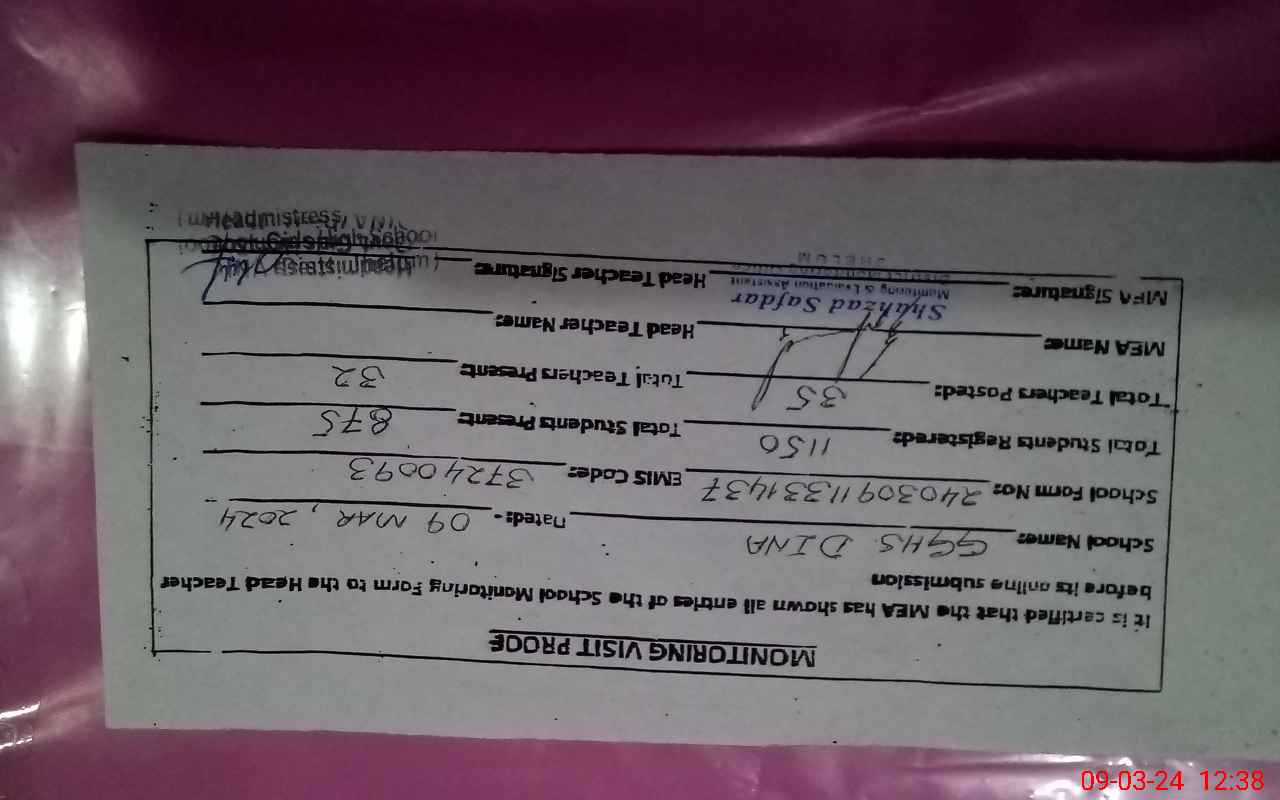 MONITORING VISIT PROOF
It is certified that the MEA has shown all entries of the School Monitoring Form to the Head Teacher
before its online submission
School Name: GGHS DINA Dated:- 09 MAR, 2024
School Form No: 240309113331437 EMIS Code: 37240093
Total Students Registered: 1150 Total Students Present: 875
Total Teachers Posted: 35 Total Teachers Present: 32
MEA Name: Head Teacher Name:
Shahzad Safdar
Monitoring & Evaluation Assistant
MEA Signature: Head Teacher Signature:
District Monitoring Office
JHELUM
Headmistress
Girls High School
Headmistress
09-03-24 12:38